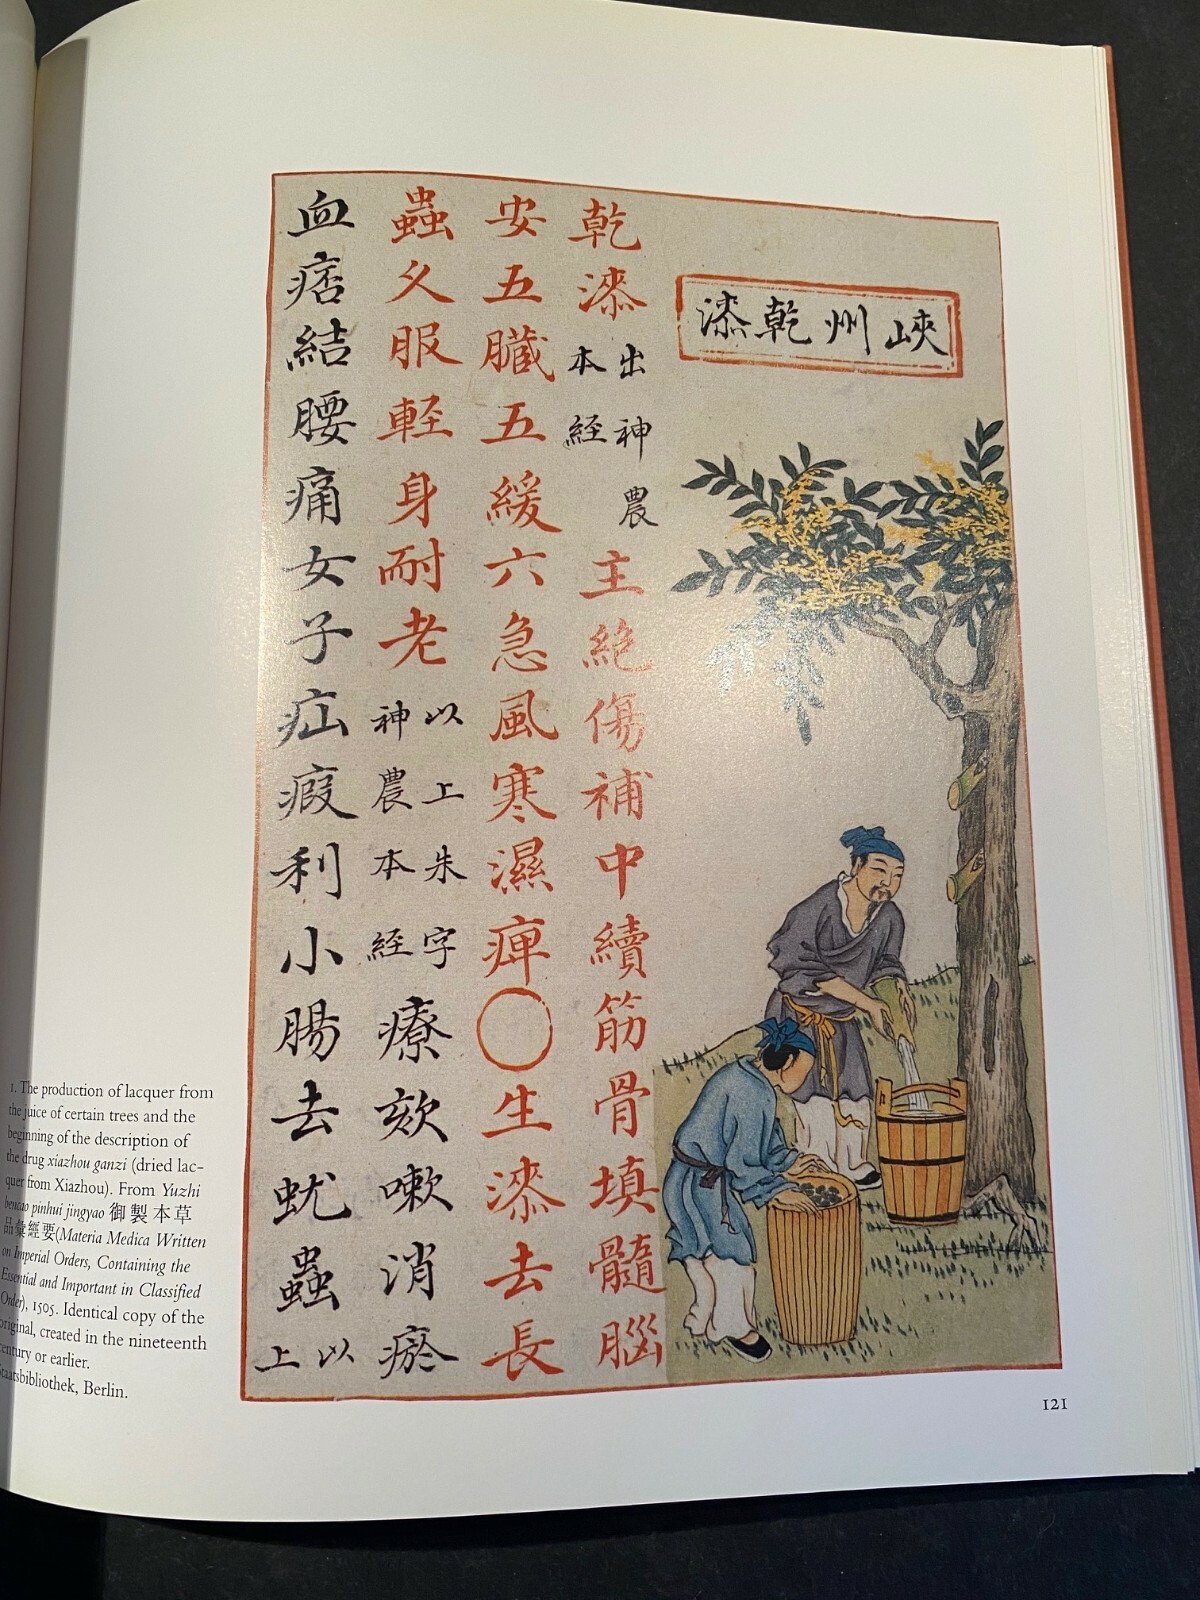 峽州乾漆
乾漆出神農本經主絶傷補中續筋骨填髓腦
安五臟五緩六急風寒濕痺○生漆去長
蟲久服軽身耐老以上朱字神農本經療欬嗽消瘀
血痞結腰痛女子疝瘕利小腸去蚘蟲以上
1. The production of lacquer from
the juice of certain trees and the
beginning of the description of
the drug xiazhou ganzi (dried lac-
quer from Xiazhou). From Yuzhi
bencao pinhui jingyao 御製本草
品彙經要(Materia Medica Written
on Imperial Orders, Containing the
Essential and Important in Classified
Order), 1505. Identical copy of the
original, created in the nineteenth
century or earlier.
Staatsbibliothek, Berlin.
121